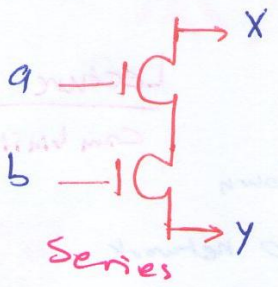 X
a
b
Y
Series